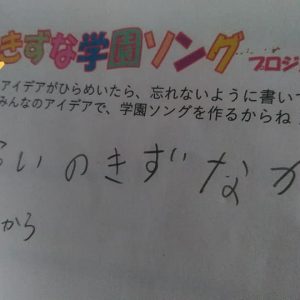 きずな学園ソング プロジ
アイデアがひらめいたら、忘れないように書いて
みんなのアイデアで、学園ソングを作るからね
らいのきずなが
から